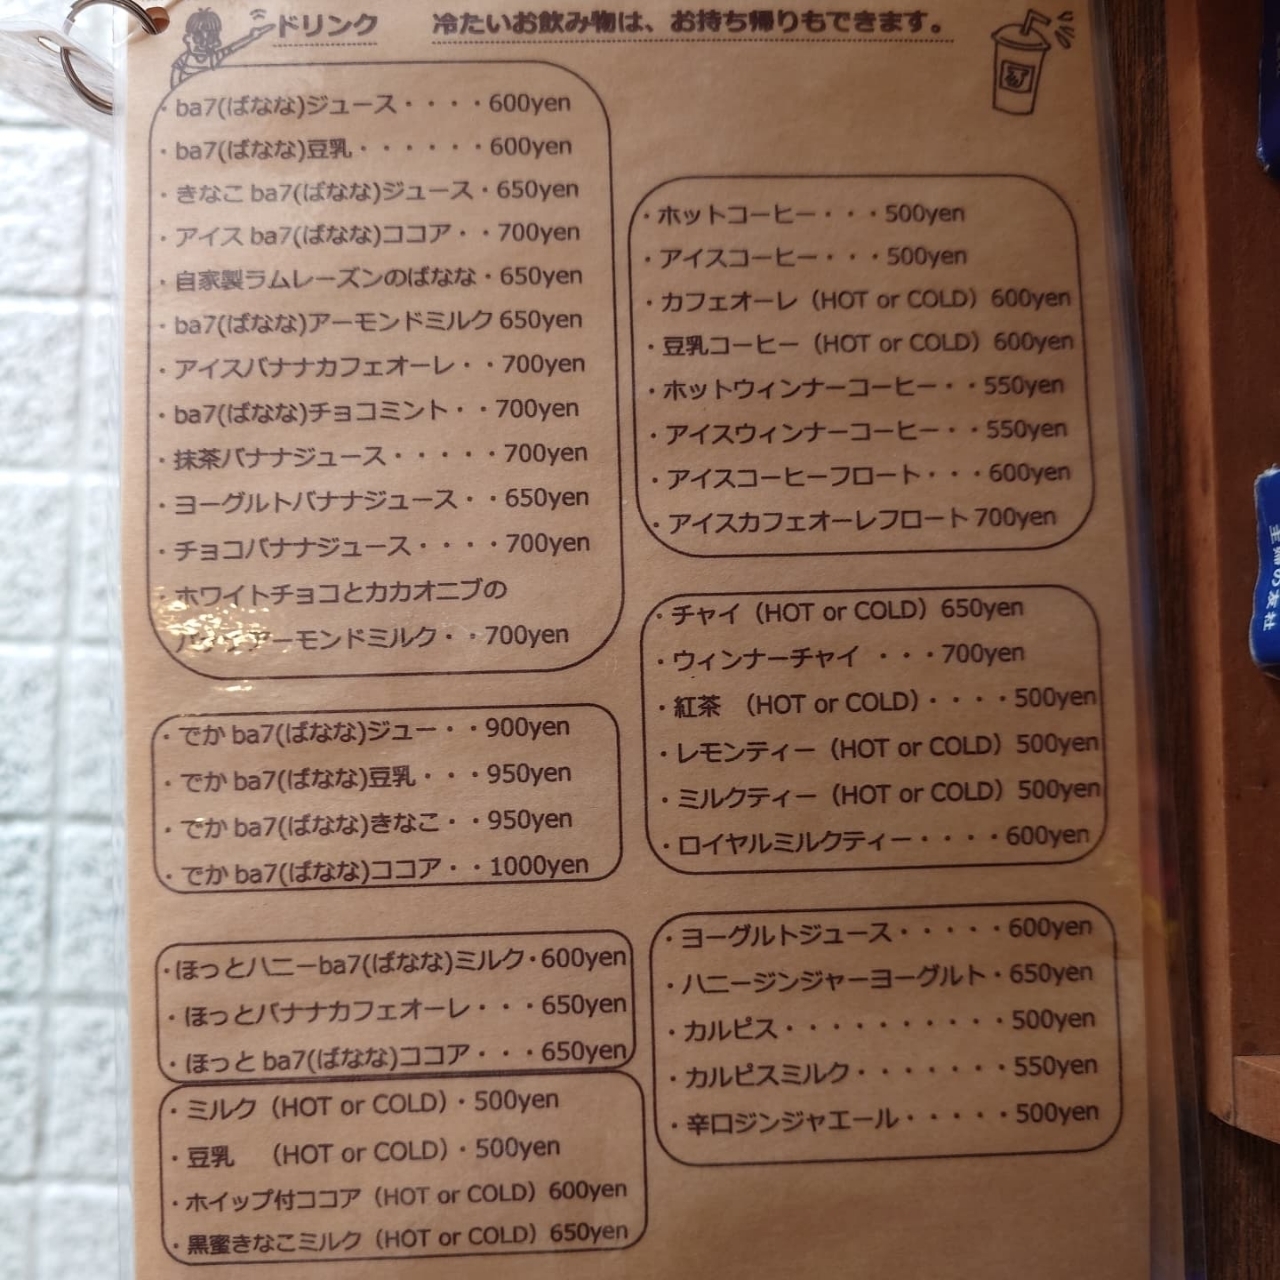 ドリンク　冷たいお飲み物は、お持ち帰りもできます。
・ba7(ばなな)ジュース・・・・600yen
・ba7(ばなな)豆乳・・・・・・600yen
・きなこ ba7(ばなな)ジュース・650yen
・アイス ba7(ばなな)ココア・・700yen
・自家製ラムレーズンのばなな・650yen
・ba7(ばなな)アーモンドミルク 650yen
・アイスバナナカフェオーレ・・700yen
・ba7(ばなな)チョコミント・・700yen
・抹茶バナナジュース・・・・・700yen
・ヨーグルトバナナジュース・・650yen
・チョコバナナジュース・・・・700yen
・ホワイトチョコとカカオニブの
アーモンドミルク・・700yen
・でか ba7(ばなな)ジュー・・900yen
・でか ba7(ばなな)豆乳・・・950yen
・でか ba7(ばなな)きなこ・・950yen
・でか ba7(ばなな)ココア・・1000yen
・ほっとハニーba7(ばなな)ミルク・600yen
・ほっとバナナカフェオーレ・・・650yen
・ほっと ba7(ばなな)ココア・・・650yen
・ミルク（HOT or COLD）・500yen
・豆乳　（HOT or COLD）・500yen
・ホイップ付ココア（HOT or COLD）600yen
・黒蜜きなこミルク（HOT or COLD）650yen
・ホットコーヒー・・・500yen
・アイスコーヒー・・・500yen
・カフェオーレ（HOT or COLD）600yen
・豆乳コーヒー（HOT or COLD）600yen
・ホットウィンナーコーヒー・・550yen
・アイスウィンナーコーヒー・・550yen
・アイスコーヒーフロート・・・600yen
・アイスカフェオーレフロート 700yen
・チャイ（HOT or COLD）650yen
・ウィンナーチャイ ・・・700yen
・紅茶　（HOT or COLD）・・・・500yen
・レモンティー（HOT or COLD）500yen
・ミルクティー（HOT or COLD）500yen
・ロイヤルミルクティー・・・・600yen
・ヨーグルトジュース・・・・・600yen
・ハニージンジャーヨーグルト・650yen
・カルピス・・・・・・・・・・500yen
・カルピスミルク・・・・・・・550yen
・辛口ジンジャエール・・・・・500yen
の友社